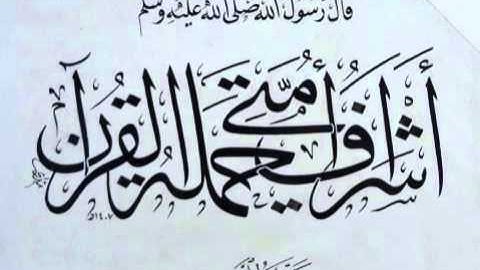 قَالَ رَسُولُ اللهِ صَلَّى اللهُ عَلَيْهِ وَسَلَّم
أَشْرَافُ أُمَّتِي حَمَلَةُ الْقُرْآنِ